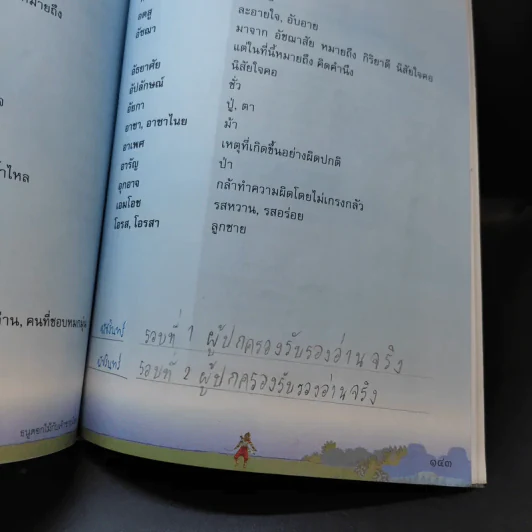 มายถึง
จ
าไหล
าน, คนที่ชอบหมกมุ่น
อดสู ละอายใจ, อับอาย
อัชฌา มาจาก อัชฌาสัย หมายถึง กิริยาดี นิสัยใจคอ
แต่ในที่นี้หมายถึง คิดคำนึง
อัธยาศัย นิสัยใจคอ
อัปลักษณ์ ชั่ว
อัยกา ปู่, ตา
อาชา, อาชาไนย ม้า
อาเพศ เหตุที่เกิดขึ้นอย่างผิดปกติ
อารัญ ป่า
อุกอาจ กล้าทำความผิดโดยไม่เกรงกลัว
เอมโอช รสหวาน, รสอร่อย
โอรส, โอรสา ลูกชาย
รอบที่ 1 ผู้ปกครองรับรองอ่านจริง
รอบที่ 2 ผู้ปกครองรับรองอ่านจริง
๑๔๓